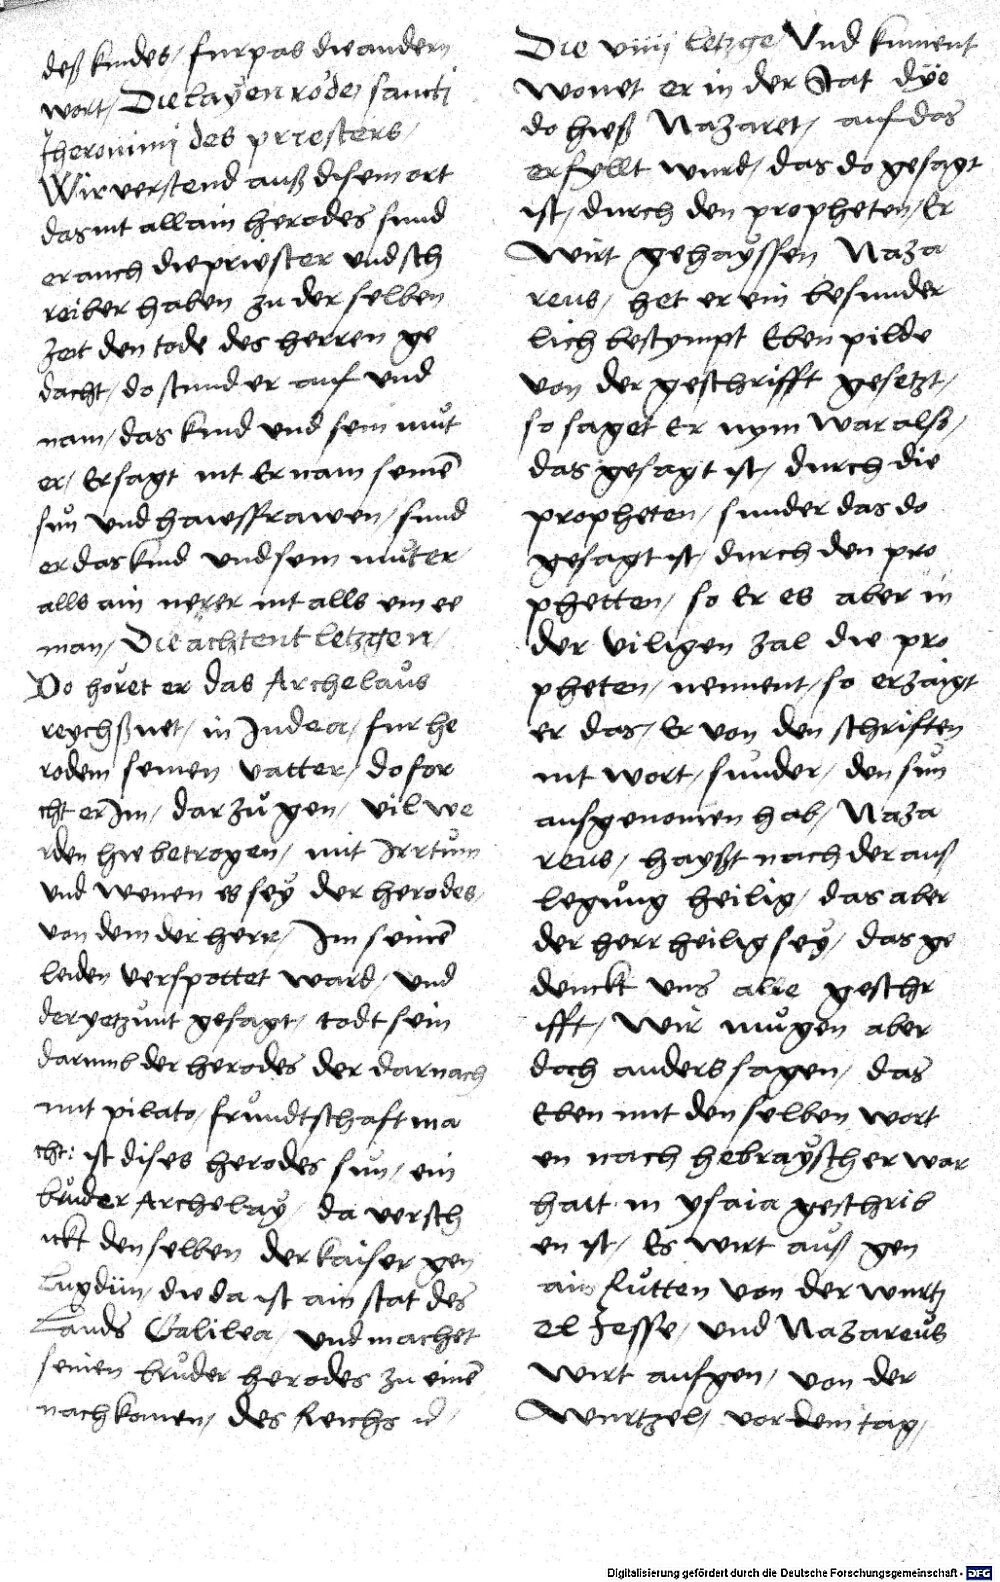 deß kindes / furpas die andern
wort / Die layen rode / sancti
Jheronimi des priesters /
Wir verstend auß disem ort
das nit allain herodes sund
er auch die priester und sch
reiber haben zu der selben
zeit den tode des herren ge
dacht / do stund er auf und
nam / das kind und sein můt
er / Er sagt nit Er nam seinē
sun und hawsffrawen / sund
er das kind und sein můter /
alls ain nerer nit alls ein ee
man / Die achtent letzgen /
Do hőret er das Archelaůs
reychßnet / in Judea / fur he
rodem seinen vatter / do for
cht er Im / dar zů gen / vil we
rden hie betrogen / mit Irrtum
und wenen es seÿ der herodes /
von dem der herr / Im seinē
leiden verspottet ward / und
der yetzunt gesagt / todt sein
darumb der herodes der darnach
mit pilato / frůndtschaft ma
cht: ist dises herodes sun / ein
brůder Archelaÿ / da versch
ickt den selben der kaiser gen
Lugdun / die da ist ain stat des
Lands Galilea / und machet
seinen brůder herodes zu einē
nachkomen / des Reichs /
Die viiij letzge / Und kument
wonet er in der Stat dÿe
do hieß Nazaret / auf das
erfyllt wurd / das do gesagt
ist / durch den propheten / Er
wirt gehaÿssen Naza
reus / het er ein besunder
lich bestympt Eben pilde
von der geschrifft gesetzt /
so saget Er nym war alß /
das gesagt ist / durch die
propheten / sunder das do
gesagt ist / durch den pro
phetten / so Er es aber in
der viligen zal die pro
pheten / nennent / so erzaigt
er das / Er von den schriften
nit wort / sunder / den sun
aufgenomen hab / Naza
reus / hayßt nach der auß
legůng heilig / das aber
der herr heilig seÿ / das ge
denckt uns alle geschr
ifft / Wir můgen aber
doch anders sagen / das
Eben mit den selben wort
en nach hebraÿscher war
hait in ysaia geschrib
en ist / Es wirt auß gen
ain Růtten von der wurtz
el Jesse / und Nazareůs
wirt aufgen / von der
Wurtzel / vor dem tag /
Digitalisierung gefördert durch die Deutsche Forschungsgemeinschaft - DFG